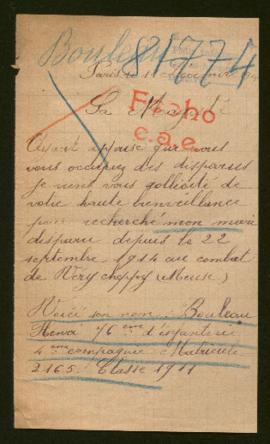 Bouleau
81774
Paris le 11
Sa Majesté
Fraho
c.a.e.
Ayant appris que vous
vous occupez des disparus
je viens vous sollicité de
votre haute bienveillance
pour recherché mon mari
disparu depuis le 22
septembre 1914 au combat
de Very cheppy (Meuse)
Voici son nom. Bouleau
Henri 76 eme d'infanterie
4 eme compagnie Matricule
2165. Classe 1911